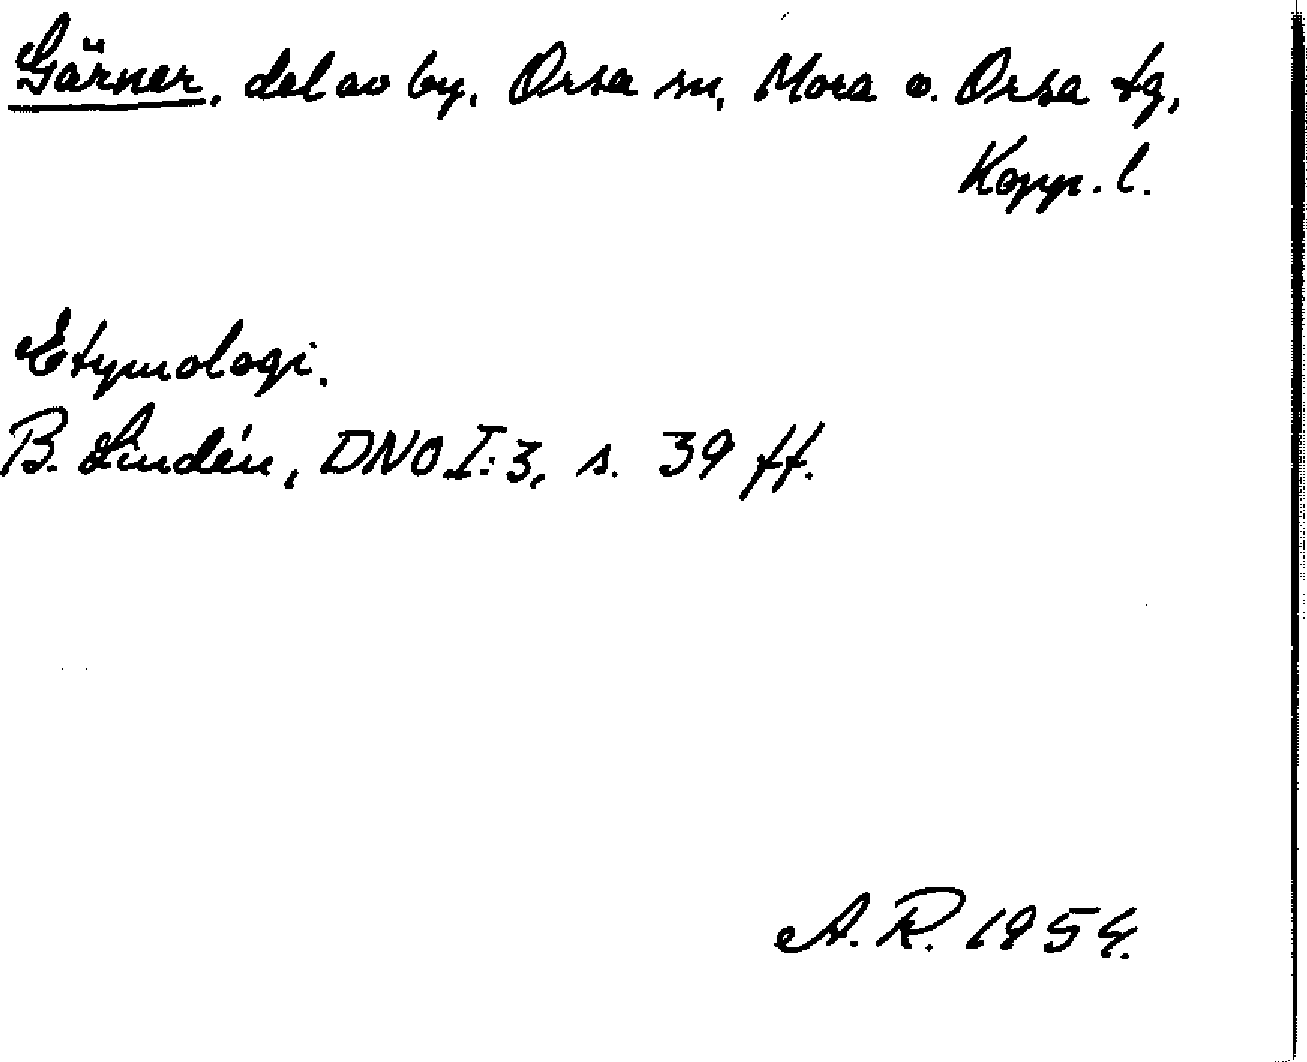 Gärner, del av by, Orsa sn, Mora o. Orsa tg,
Kopp. l.
Etymologi.
B. Lindén, DNO I:3, s. 39 ff.
A. R. 1954.